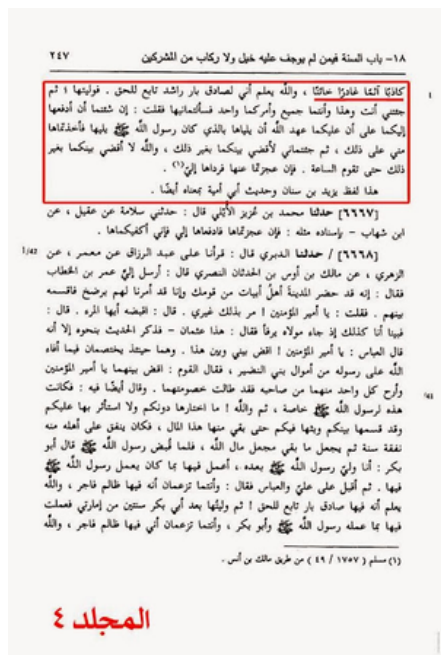 ١٨- باب السنة فيمن لم يوجف عليه خيل ولا ركاب من المشركين ٢٤٧
كاذبًا آثمًا غادرًا خائنًا ، والله يعلم أني لصادق بار راشد تابع للحق . فوليتها ؛ ثم
جئتني أنت وهذا وأنتما جميع وأمركما واحد فسألتمانيها فقلت : إن شئتما أن أدفعها
إليكما على أن عليكما عهد الله أن يلياها بالذي كان رسول الله ﷺ يليها فأخذتماها
مني على ذلك ، ثم جئتماني لأقضي بينكما بغير ذلك ، والله لا أقضي بينكما بغير
ذلك حتى تقوم الساعة . فإن عجزتما عنها فرداها إليّ(١) .
هذا لفظ يزيد بن سنان وحديث أبي أمية بمعناه أيضًا .
[٦٦٦٧] حدثنا محمد بن عُزيز الأيلي قال : حدثني سلامة عن عقيل ، عن
ابن شهاب - بإسناده مثله : فإن عجزتما فادفعاها إلي فإني أكفيكماها .
[٦٦٦٨] / حدثنا الدبري قال : قرأنا على عبد الرزاق عن معمر ، عن
الزهري ، عن مالك بن أوس بن الحدثان النصري قال : أرسل إليّ عمر بن الخطاب
فقال : إنه قد حضر المدينة أهل أبيات من قومك وإنا قد أمرنا لهم برضخ فاقسمه
بينهم . فقلت : يا أمير المؤمنين ! مر بذلك غيري . قال : اقبضه أيها المرء . قال :
فبينا أنا كذلك إذ جاء مولاه يرفأ فقال : هذا عثمان - فذكر الحديث بنحوه إلا أنه
قال العباس : يا أمير المؤمنين ! اقض بيني وبين هذا . وهما حينئذ يختصمان فيما أفاء
الله على رسوله من أموال بني النضير ، فقال القوم : اقض بينهما يا أمير المؤمنين
وأرح كل واحد منهما من صاحبه فقد طالت خصومتهما . وقال أيضًا فيه : فكانت
هذه لرسول الله ﷺ خاصة ، ثم والله ! ما اختارها دونكم ولا استأثر بها عليكم
وقد قسمها بينكم وبثها فيكم حتى بقي منها هذا المال ، فكان ينفق على أهله منه
نفقة سنة ثم يجعل ما بقي مجعل مال الله ، فلما قُبض رسول الله ﷺ قال أبو
بكر : أنا وليّ رسول الله ﷺ بعده ، أعمل فيها بما كان يعمل رسول الله ﷺ
فيها . ثم أقبل على عليّ والعباس فقال : وأنتما تزعمان أنه فيها ظالم فاجر ، والله
يعلم أنه فيها صادق بار تابع للحق ! ثم وليتُها بعد أبي بكر سنتين من إمارتي فعملت
فيها بما عمله رسول الله ﷺ وأبو بكر ، وأنتما تزعمان أني فيها ظالم فاجر ، والله
(١) مسلم ( ١٧٥٧ / ٤٩ ) من طريق مالك بن أنس .
المجلد ٤